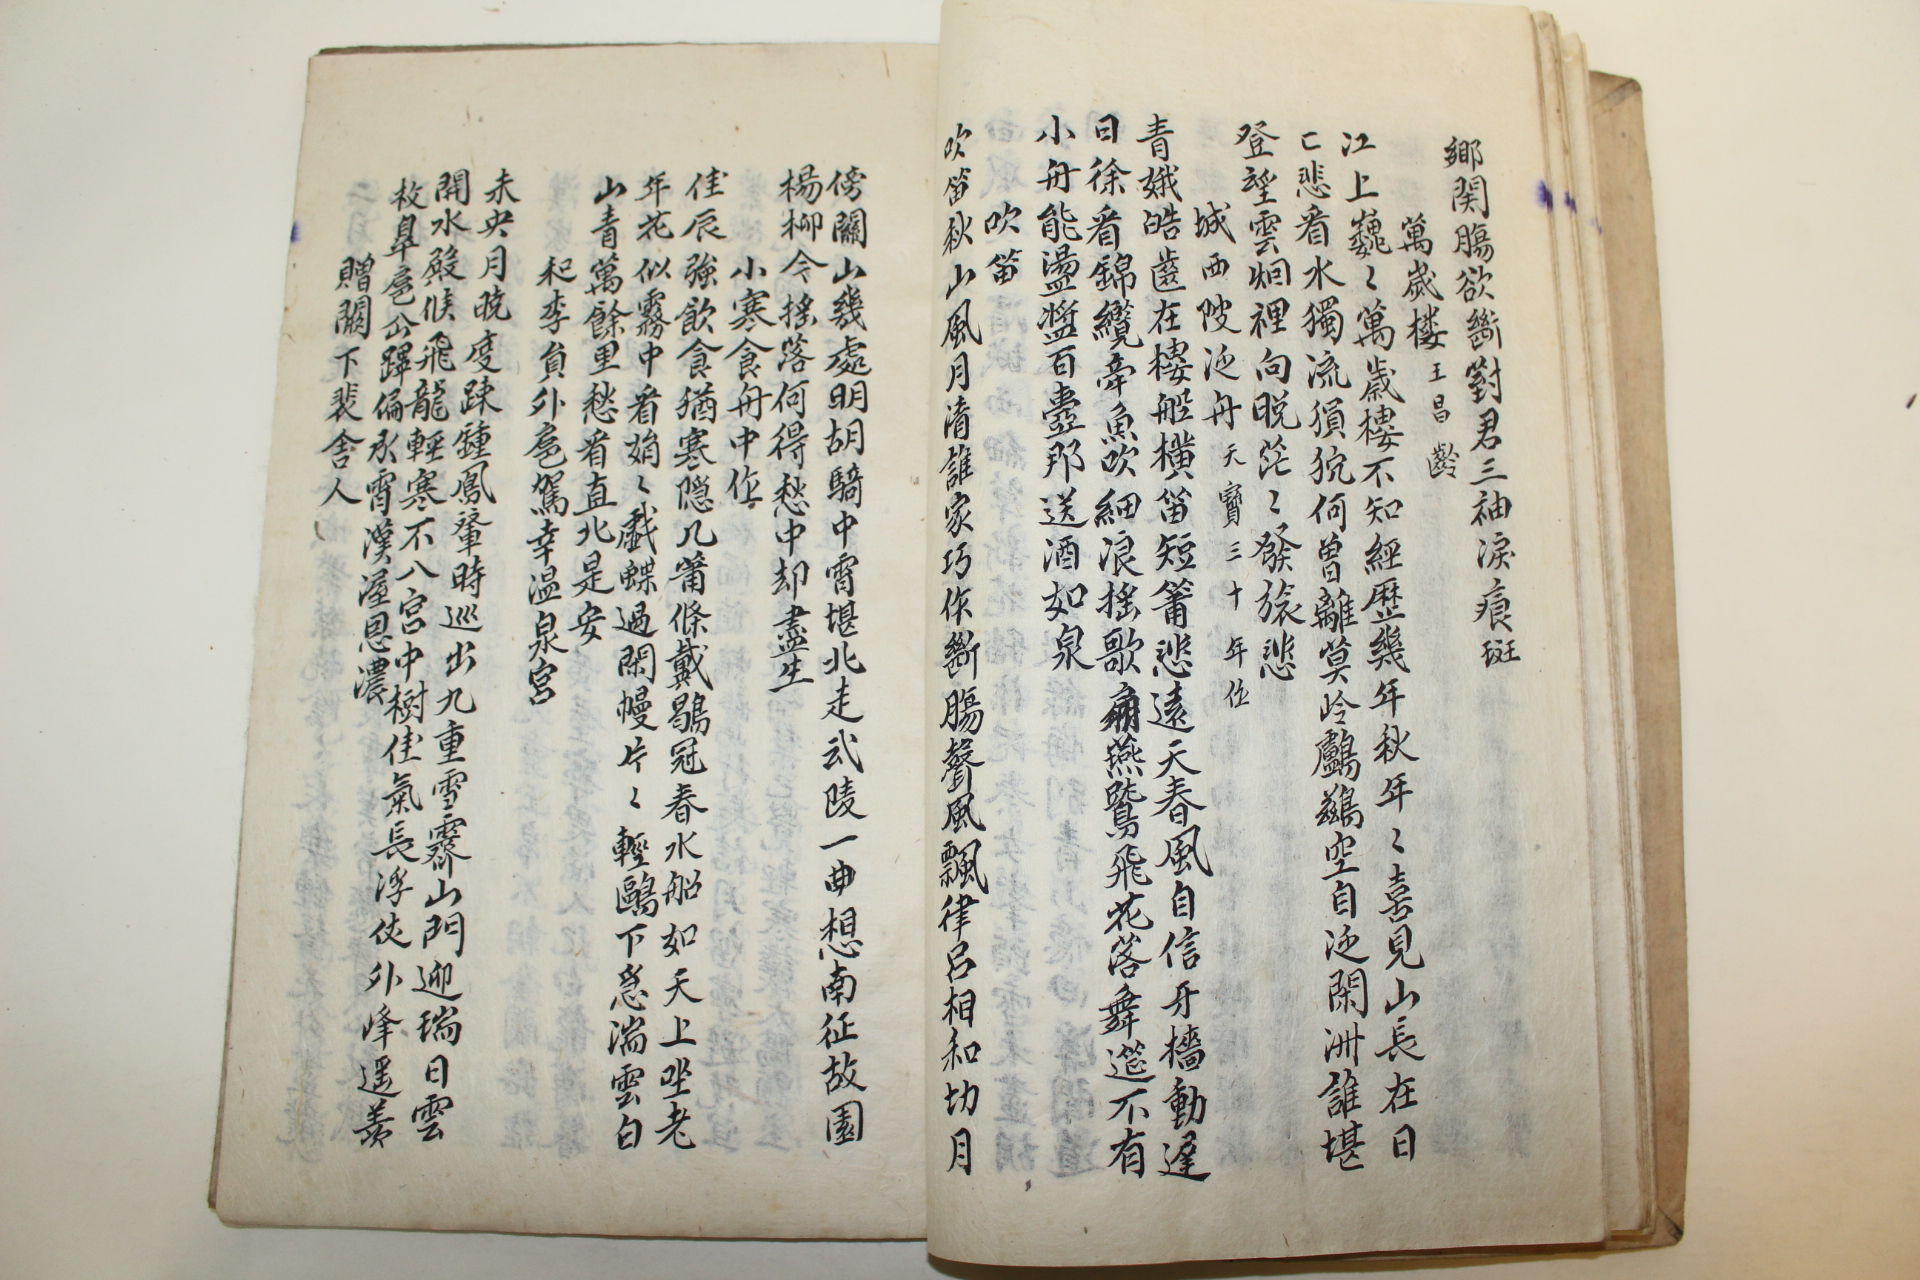 鄉関膓欲斷對君三袖淚痕斑
萬歲樓 王昌齡
江上巍〻萬歲樓不知經歷幾年秋年〻喜見山長在日
〻悲看水獨流猿狖何曾離莫岭鸕鷀空自泛閑洲誰堪
登望雲烟裡向晚茫〻發旅悲
城西陂泛舟 天寶三十年作
青娥皓齒在樓船橫笛短簫悲遠天春風自信牙檣動遲
日徐看錦纜牽魚吹細浪搖歌扇燕蹴飛花落舞筵不有
小舟能盪槳百壺那送酒如泉
吹笛
吹笛秋山風月清誰家巧作斷膓聲風飄律呂相和切月
傍關山幾處明胡騎中宵堪北走武陵一曲想南征故園
楊柳今搖落何得愁中却盡生
小寒食舟中作
佳辰強飮食猶寒隱几蕭條戴鶡冠春水船如天上坐老
年花似霧中看娟〻戲蝶過閑幔片〻輕鷗下急湍雲白
山青萬餘里愁看直北是安
和李員外扈駕幸温泉宮
未央月曉度踈鍾鳳輦時巡出九重雪霽山門迎瑞日雲
開水殿候飛龍輕寒不入宮中樹佳氣長浮仗外峰遥羨
枚皐扈仙蹕偏承霄漢渥恩濃
贈闕下裴舍人